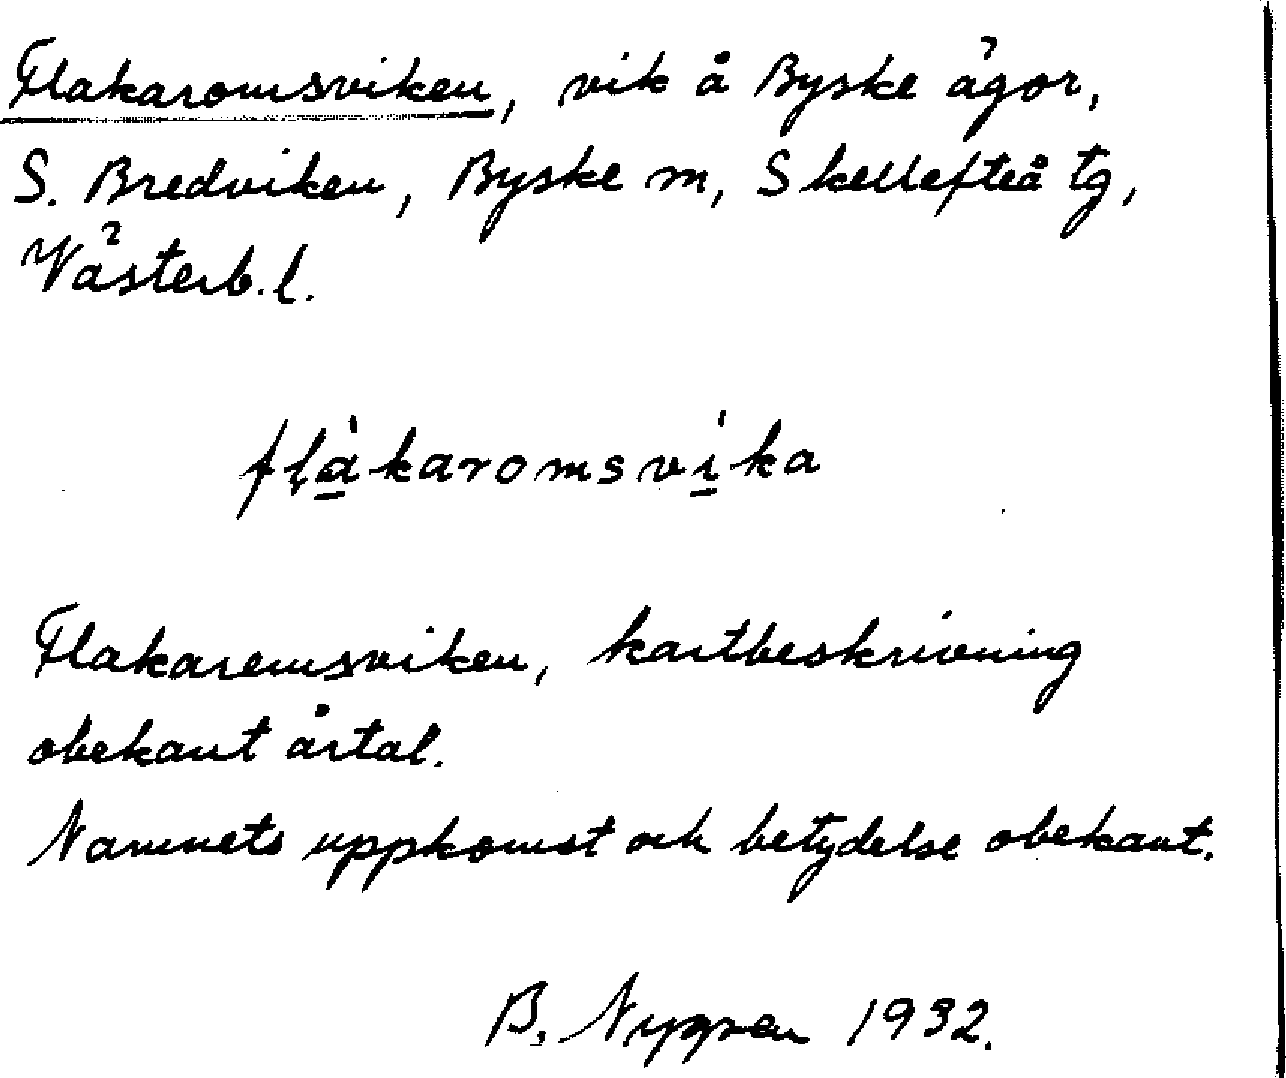 Flakaromsviken, vik å Byske ägor,
S. Bredviken, Byske m, Skellefteå tg,
Västerb.l.
flàkaromsvìka
Flakaremsviken, kartbeskrivning
obekant årtal.
Namnets uppkomst och betydelse obekant.
B. Nygren 1932.